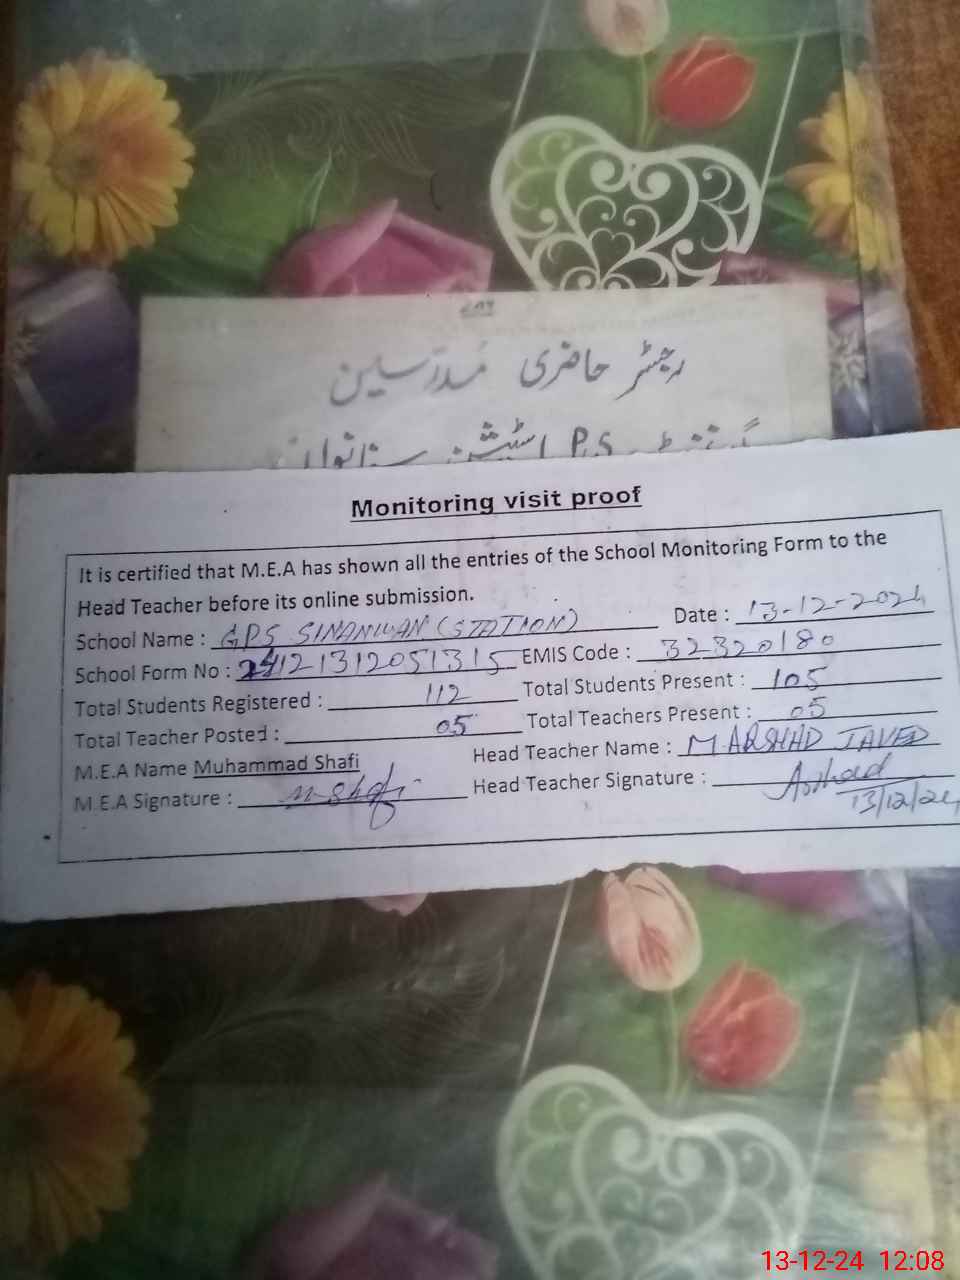 رجسٹر حاضری مُدرّسین
گورنمنٹ P.S اسٹیشن سنانواں
Monitoring visit proof
It is certified that M.E.A has shown all the entries of the School Monitoring Form to the
Head Teacher before its online submission.
School Name : GPS SINANWAN (STATION) Date : 13-12-2024
School Form No : 24121312051315 EMIS Code : 32320180
Total Students Registered : 112 Total Students Present : 105
Total Teacher Posted : 05 Total Teachers Present : 05
M.E.A Name Muhammad Shafi Head Teacher Name : M. ARSHAD JAVED
M.E.A Signature : M Shafi Head Teacher Signature : Arshad
13/12/24
13-12-24 12:08